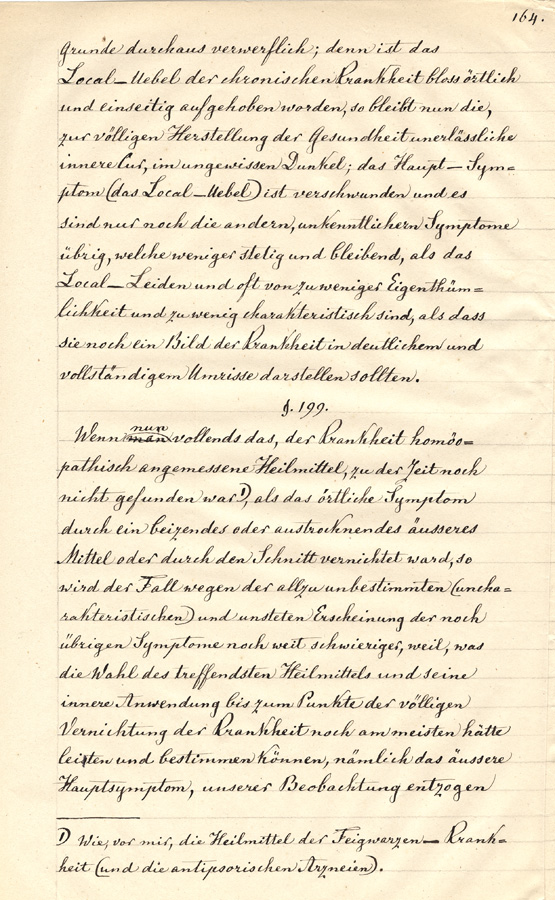 164.
Grunde durchaus verwerflich; denn ist das
Local-Uebel der chronischen Krankheit bloss örtlich
und einseitig aufgehoben worden, so bleibt nun die,
zur völligen Herstellung der Gesundheit unerlässliche
innere Cur, im ungewissen Dunkel; das Haupt-Sym=
ptom (das Local-Uebel) ist verschwunden und es
sind nur noch die andern, unkenntlichern Symptome
übrig, welche weniger stetig und bleibend, als das
Local-Leiden und oft von zu weniger Eigenthüm=
lichkeit und zu wenig charakteristisch sind, als dass
sie noch ein Bild der Krankheit in deutlichem und
vollständigem Umrisse darstellen sollten.
§. 199.
Wenn nun vollends das, der Krankheit homöo=
pathisch angemessene Heilmittel, zu der Zeit noch
nicht gefunden war 1), als das örtliche Symptom
durch ein beizendes oder austrocknendes äusseres
Mittel oder durch den Schnitt vernichtet ward, so
wird der Fall wegen der allzu unbestimmten (uncha=
rakteristischen) und unsteten Erscheinung der noch
übrigen Symptome noch weit schwieriger, weil, was
die Wahl des treffendsten Heilmittels und seine
innere Anwendung bis zum Punkte der völligen
Vernichtung der Krankheit noch am meisten hätte
leisten und bestimmen können, nämlich das äussere
Hauptsymptom, unserer Beobachtung entzogen
1) Wie, vor mir, die Heilmittel der Feigwarzen-Krank=
heit (und die antipsorischen Arzneien).